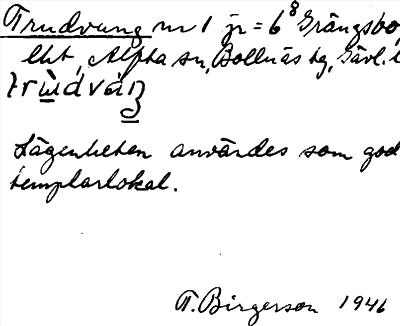 Trudvang nr 1 jr = 6⁸ Grängsbo,
lht, Alfta sn, Bollnäs tg, Gävl. l
Lägenheten användes som god
templarlokal.
T. Birgerson 1946